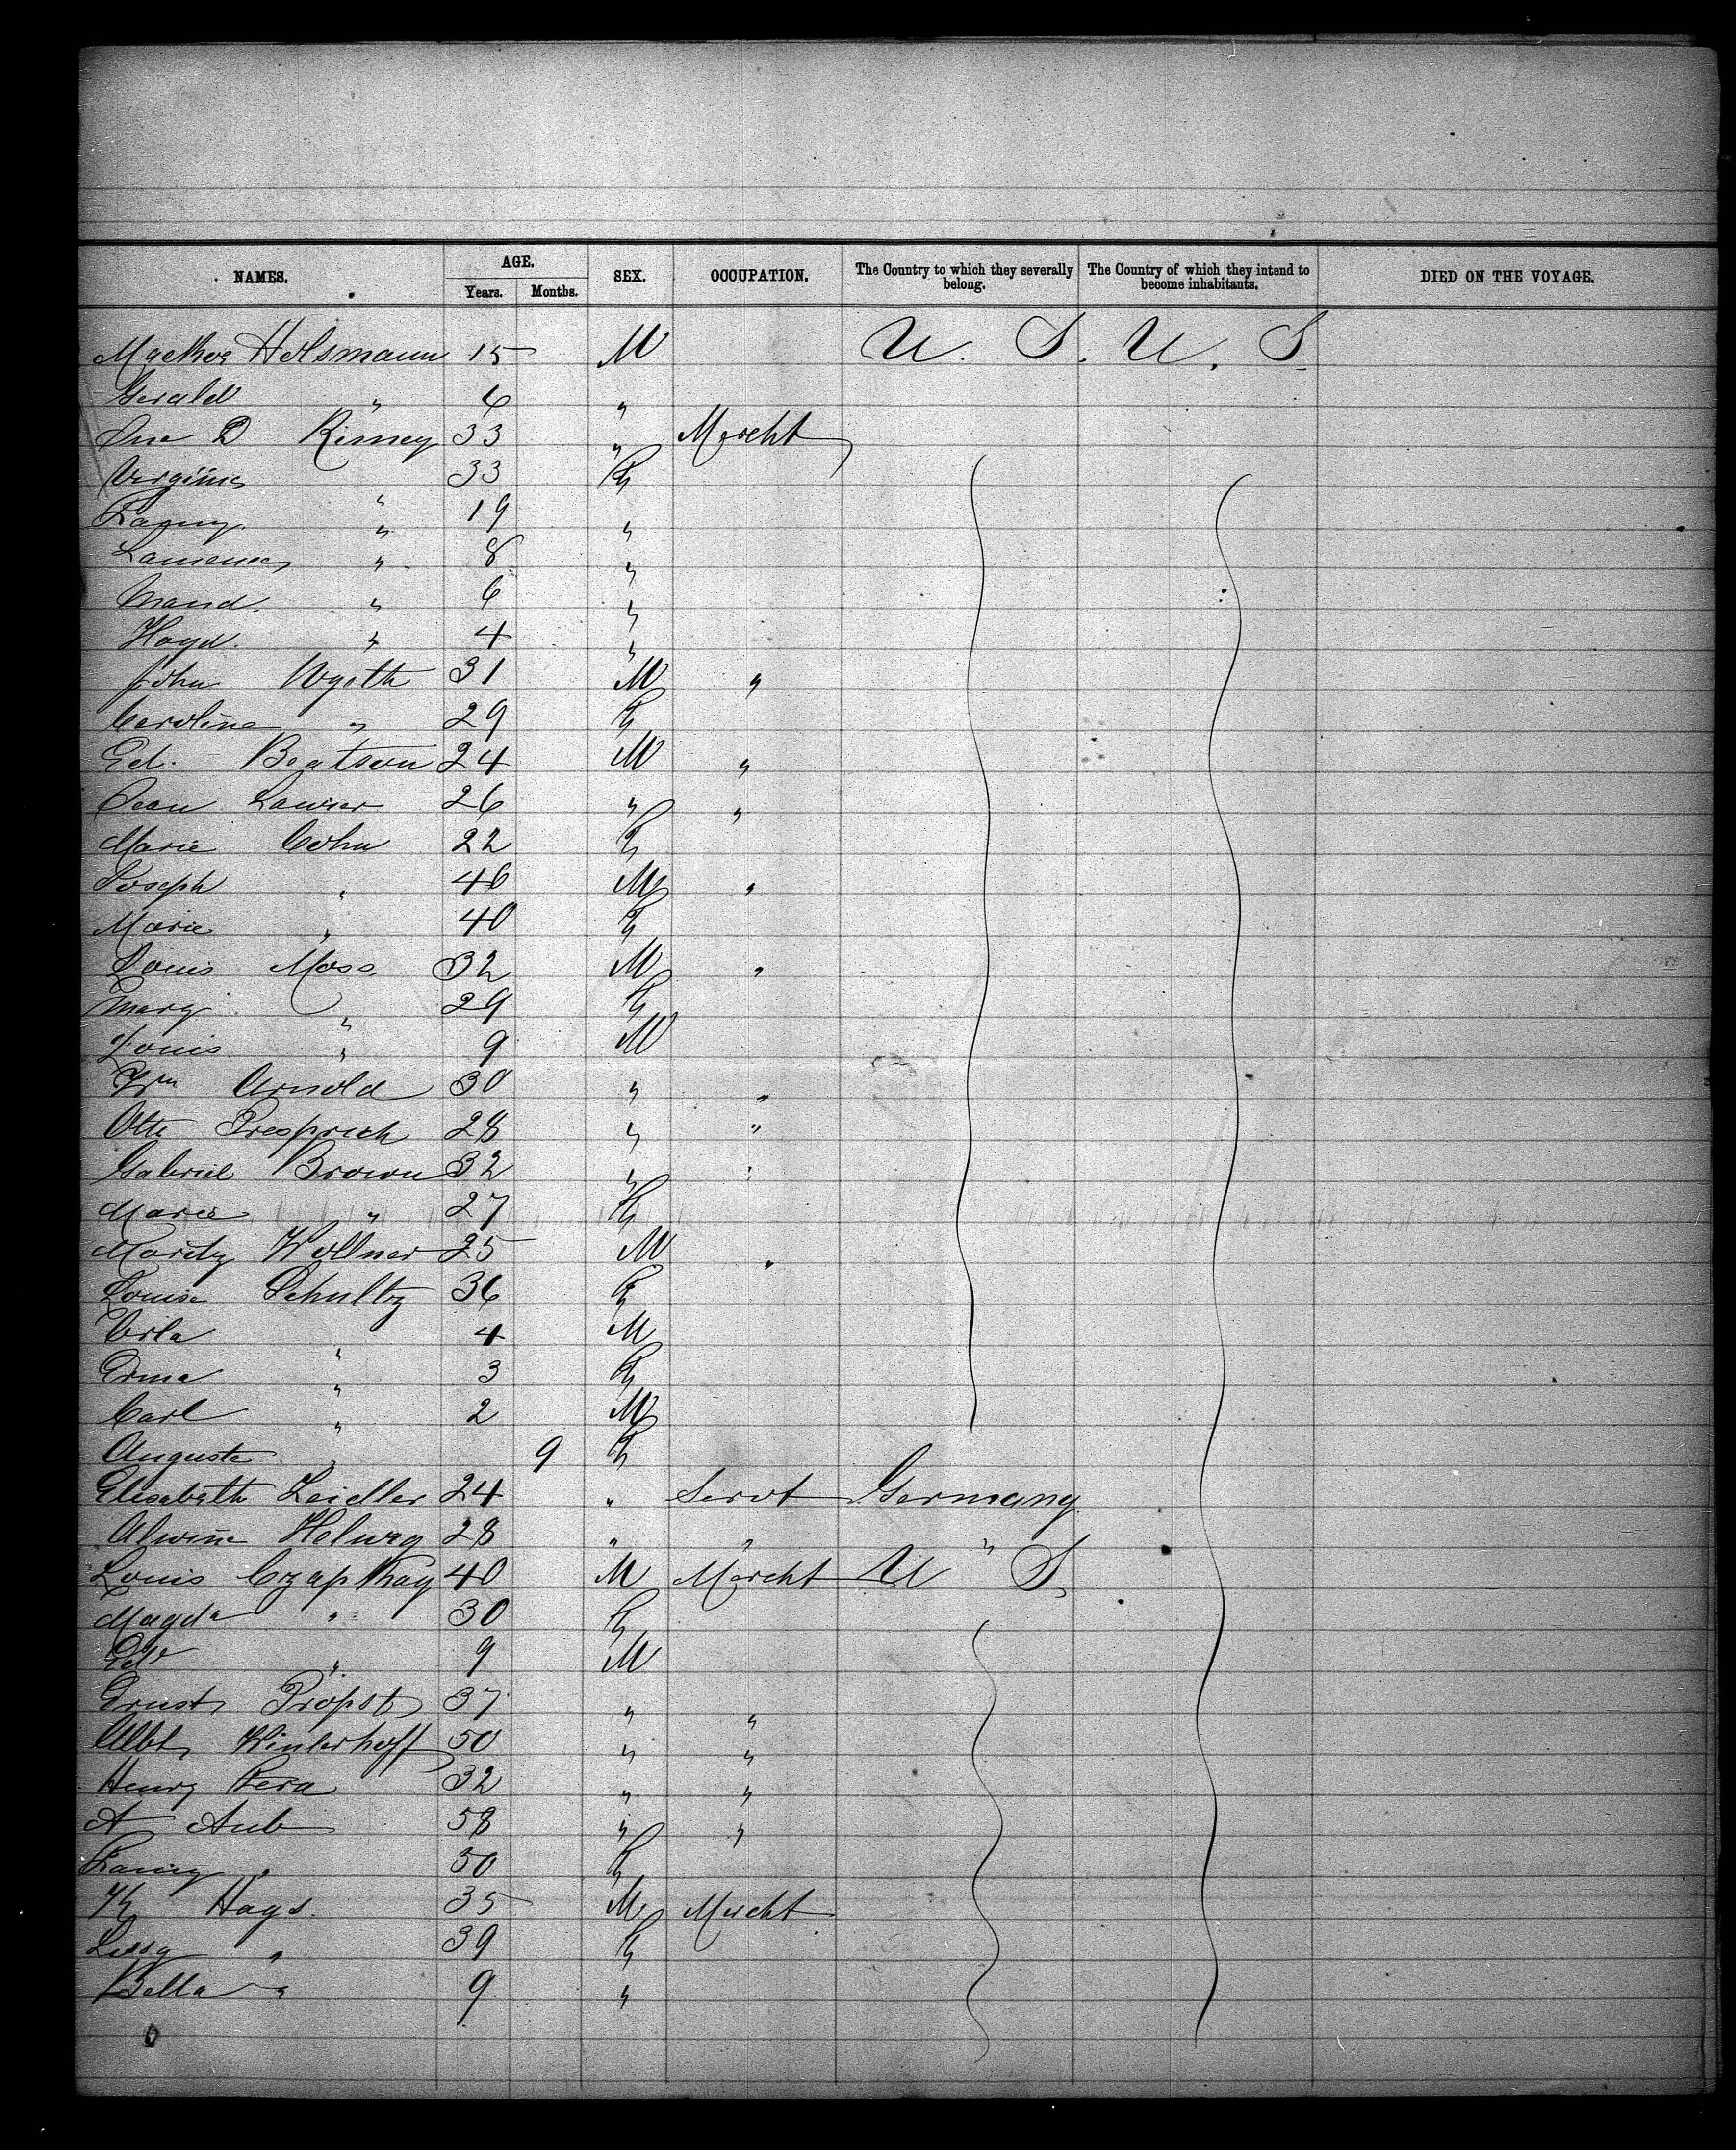 NAMES. AGE. SEX. OCCUPATION. The Country to which they severally belong. The Country of which they intend to become inhabitants. DIED ON THE VOYAGE.
Years. Months.
Holsmann 15 M U. S. U. S
Gerald " 6 "
D Rimey 33 " Mercht
Virginia 33 F
Fanny " 19 "
" 8 "
Maud. " 6 "
" 4 "
John Wyeth 31 M "
Caroline " 29 F
Ed. Beatson 24 M "
26 " "
Marie Cohn 22 F
Joseph " 46 M "
Marie " 40 F
Louis Moss 32 M "
Mary " 29 F
Louis " 9 M
Wm Arnold 30 " "
Otto 28 " "
Gabriel Brown 32 " "
Marie " 27 F
Wollner 25 M "
Louise Schultz 36 F
4 M
Erma " 3 F
Carl " 2 M
Auguste " 9 F
Elisabeth Leidler 24 " Servt Germany
Alwine Helwag 28 " " "
Louis Czapkay 40 M Mercht U S
Magda " 30 F
Edv " 9 M
Ernst Propst 37 " "
Albt Winterhoff 50 " "
Henry 32 " "
A Aub 58 " "
Fanny " 50 F
Hays. 35 M Mercht
" 39 F
Bella " 9 "